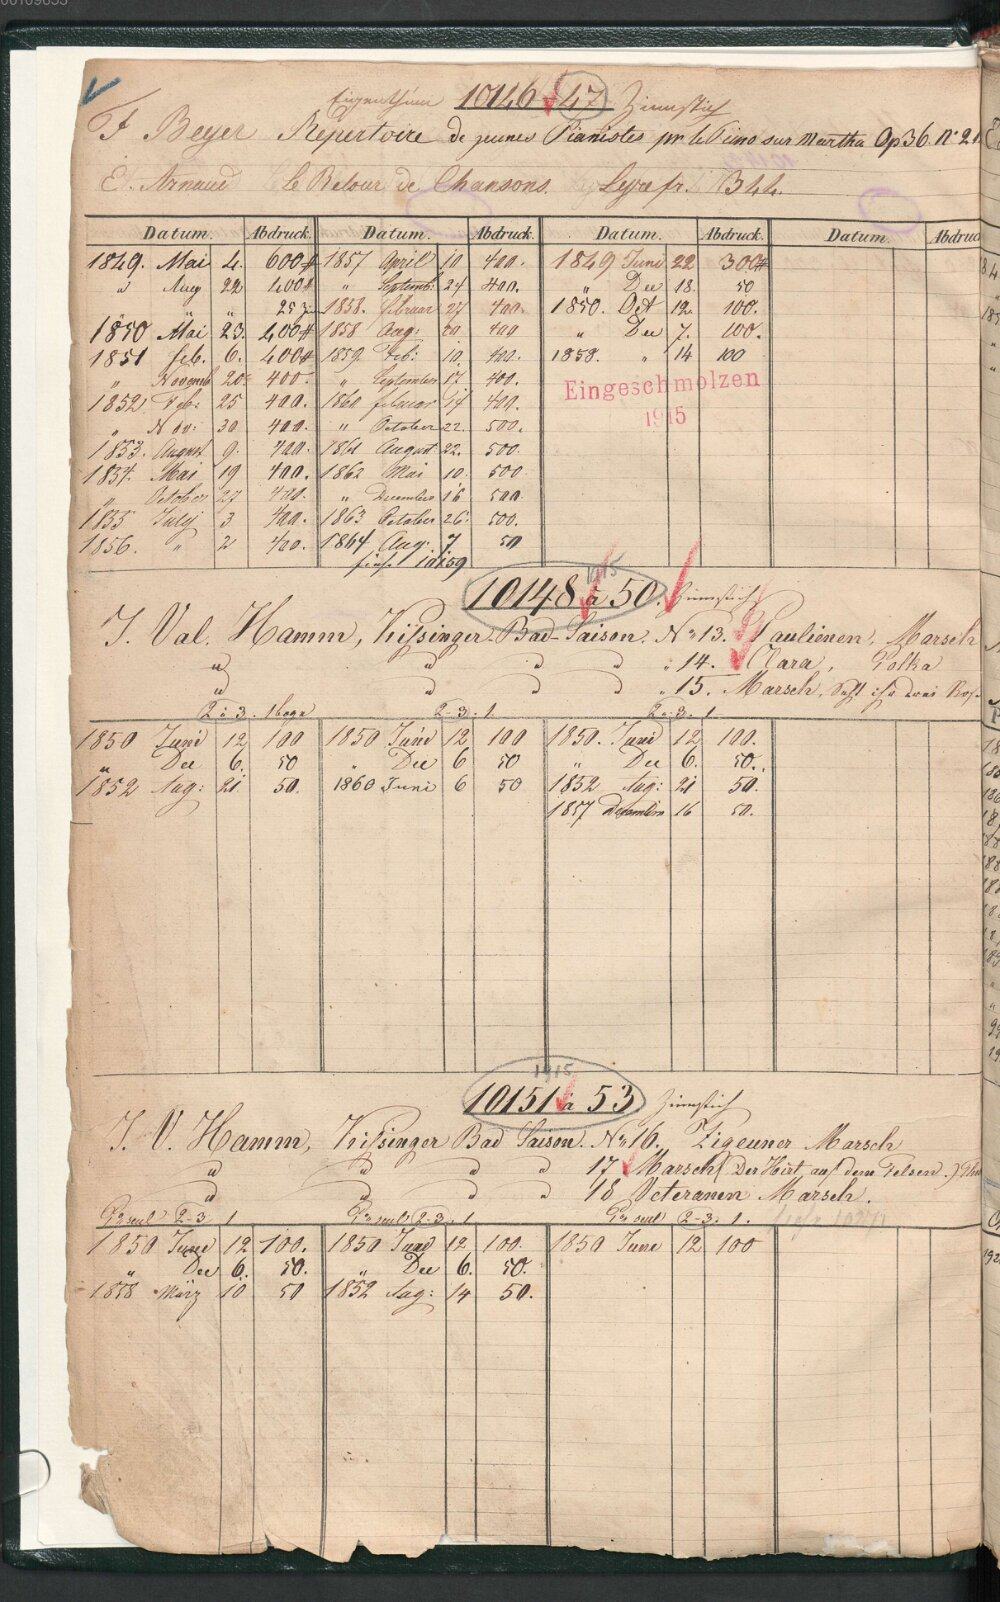 Eigenthum 10146 47 Zinnstich
F Beyer Repertoire de jeunes Pianistes pr le Piano sur Martha Op 36. No 21
E. Arnaud Le Retour de Chansons. Lyre fr. 344.
Datum. Abdruck. Datum. Abdruck. Datum. Abdruck. Datum. Abdruc
1849. Mai 4. 600 1857 April 10 400. 1849 Juni 22 300
" Aug 22 400 " Septemb: 24 400. " Dec 18. 50
" " 25 1858. februar 27 400. 1850. Oct 12 100.
1850 Mai 23. 400 1858 Aug: 20 400 " Dec 7. 100.
1851 feb. 6. 400 1859 Feb: 10. 400. 1858. " 14 100
" Novemb 20 400. " September 17 400.
Eingeschmolzen
1852 Feb: 25 400. 1860 februar 14 400.
1915
" Nov: 30 400. " October 22. 500.
1853. August 9. 400. 1861 August 22. 500.
1854. Mai 19 400. 1862 Mai 10. 500
" October 27 400. " December 16 500
1855 July 3 400. 1863 October 26. 500.
1856. " 2 400. 1864 Aug: 7 50
10159
1915
10148 à 50. Zinnstich
J. Val. Hamm, Kissinger Bad-Saison. No 13. Paulienen, Marsch
" " " " " 14. Clara, Polka
" " " " " 15. Marsch,
2 à 3. 1 boga 2-3. 1. 2-3. 1
1850 Juni 12 100 1850 Juni 12 100 1850. Juni 12 100.
" Dec 6. 50 " Dec 6 50 " Dec 6. 50.
1852 Aug: 21 50. 1860 Juni 6 50 1852 Aug: 21 50.
1857 Dezember 16 50.
1915
10151 à 53 Zinnstich
J. V. Hamm, Kissinger Bad Saison. No 16. Zigeuner Marsch
" " " " 17 Marsch (Der Hirt auf dem Felsen.)
" " " " 18 Veteranen Marsch.
2-3 1 2-3. 1 2-3. 1.
1850 Juni 12 100. 1850 Juni 12 100. 1850 June 12 100
" Dec 6. 50. " Dec 6. 50.
1858 März 10 50 1852 Aug: 14 50.